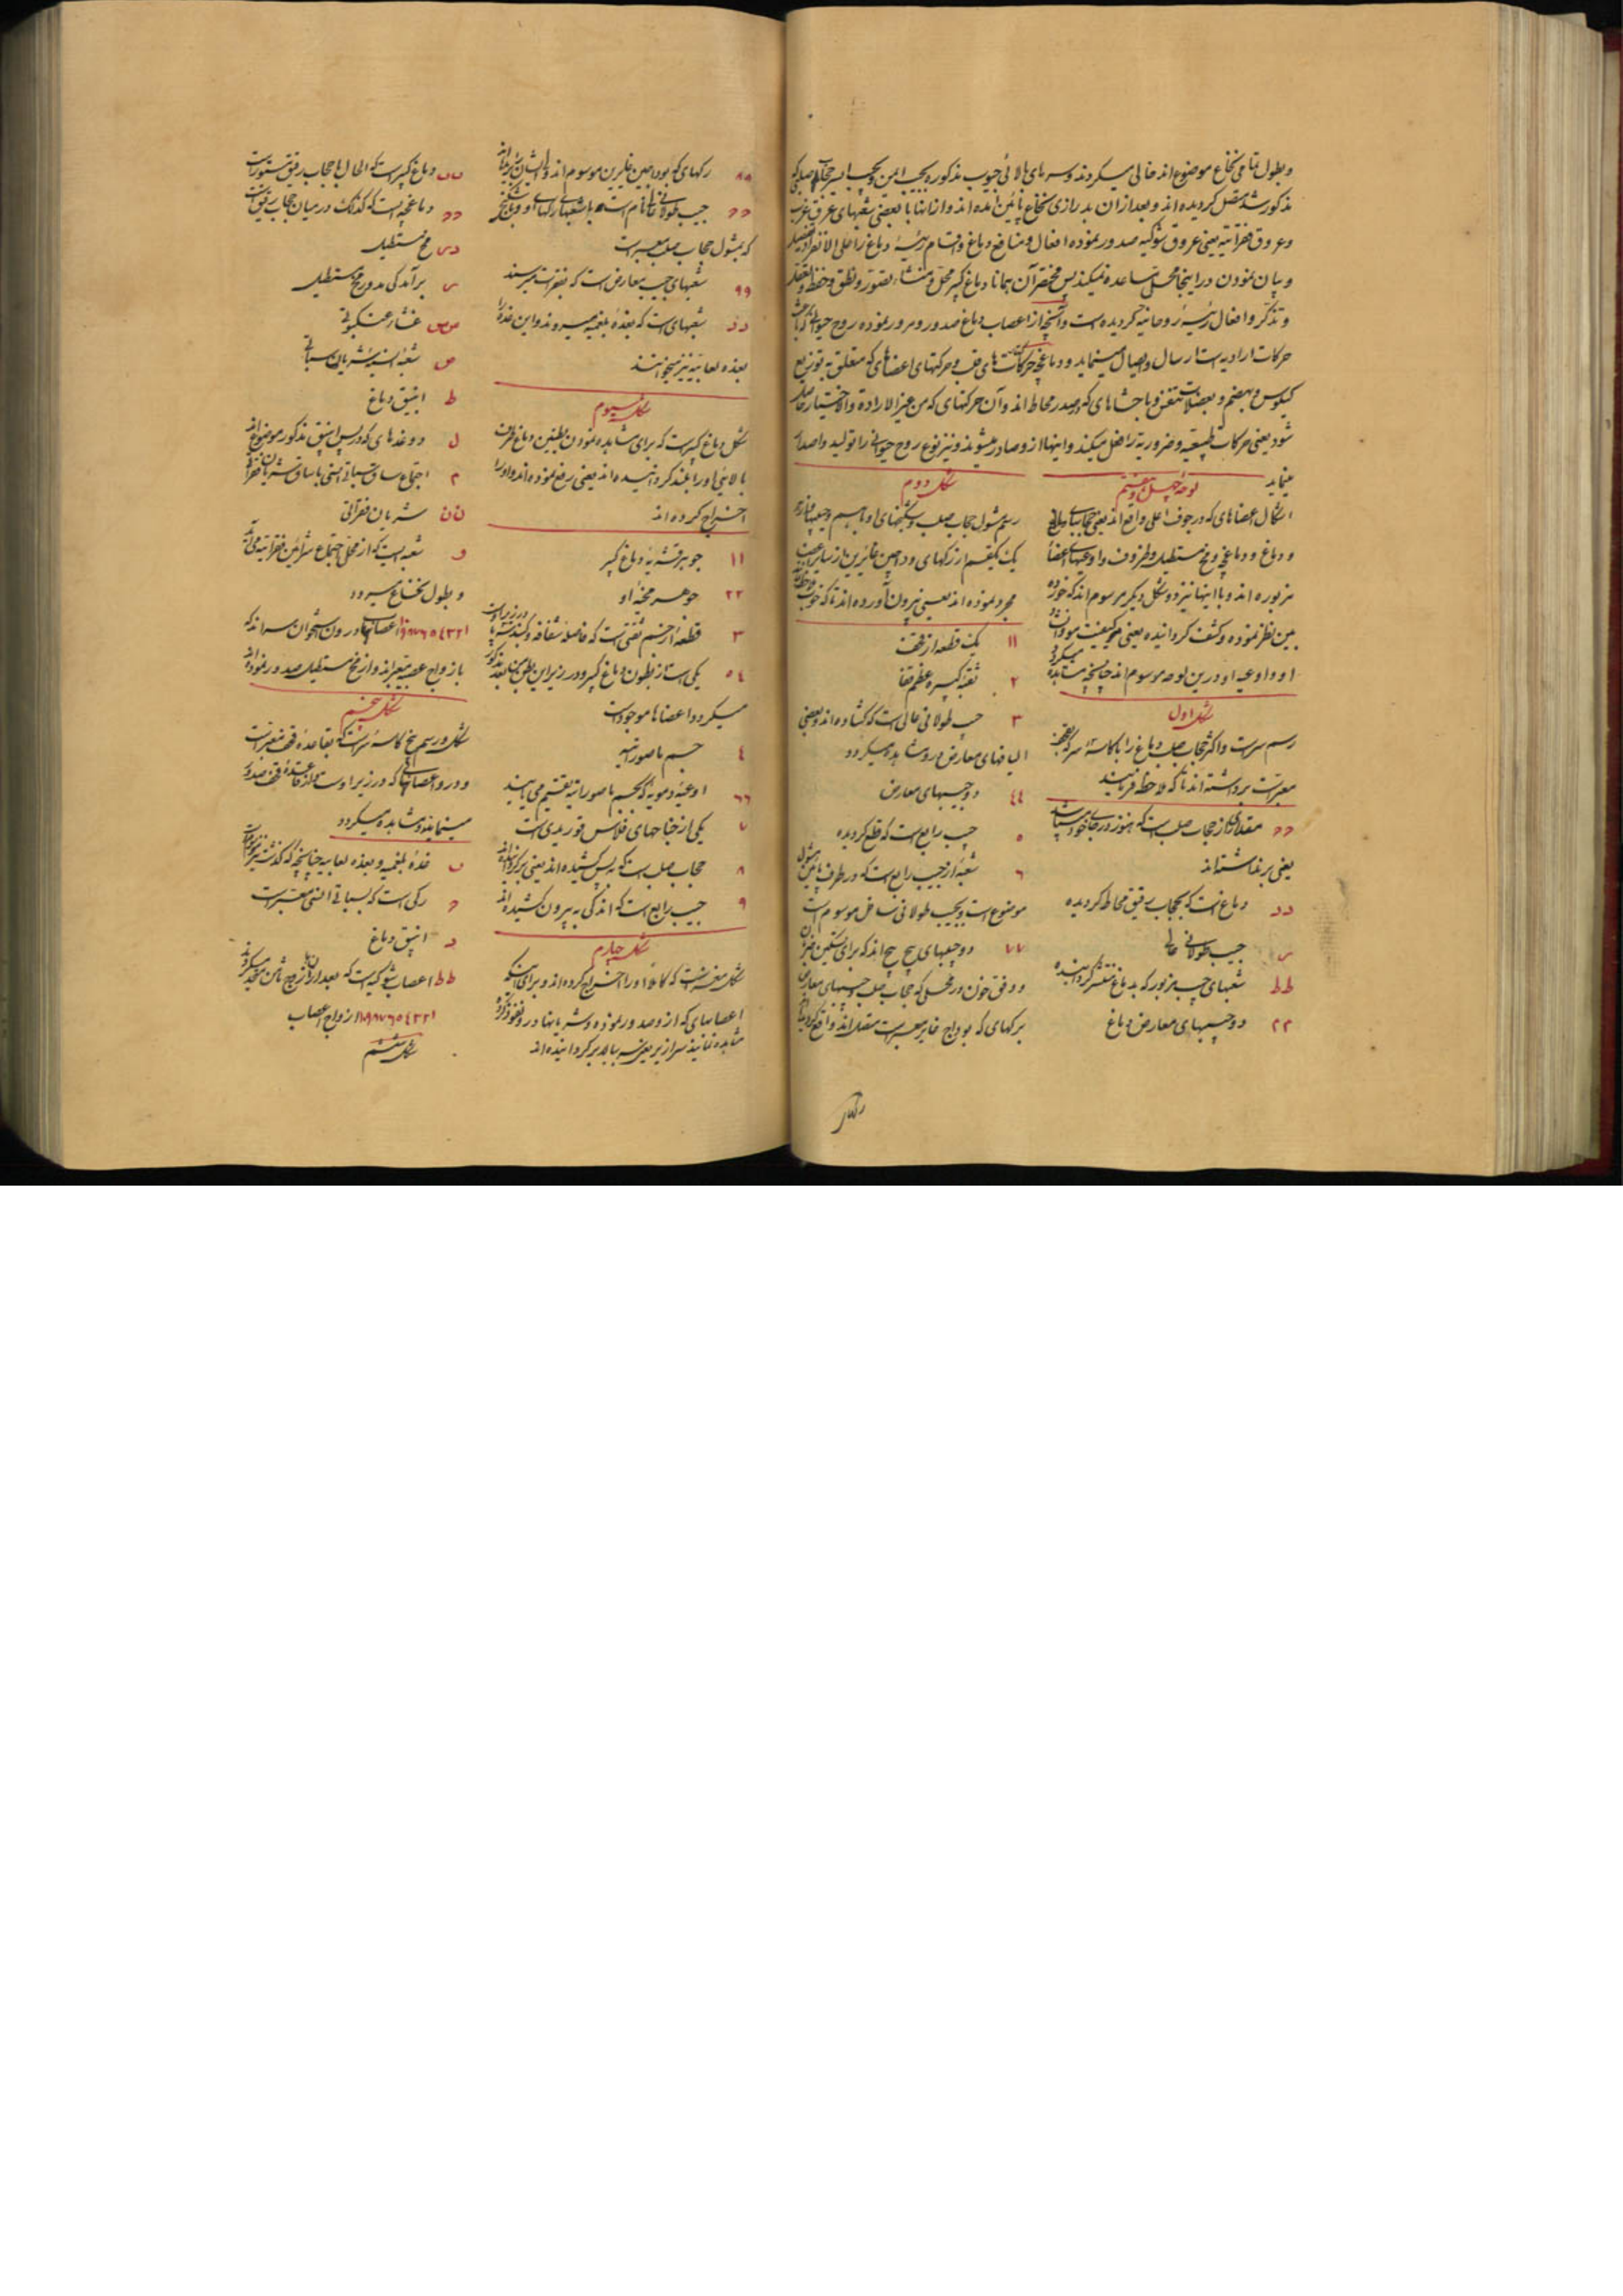 و بطول تمامی نخاع موضوع اند خالی میکردند و سرهای بالائی جیوب مذکوره بجیب ایمن و بجیب ایسر حجاب صلبی که
مذکور شد متصل کردیده اند و بعد از ان بدرازی نخاع پائین آمده اند و از انها با بعضی شعبهای عرق غرب
و عروق فقراتیه یعنی عروق شوکیه صدور نموده افعال و منافع دماغ و اقسام رئیسهٔ دماغ را علی الانفراد تفصیل
و بیان نمودن در اینجا محل مساعده نمیکند پس مختصر آن همانا دماغ کبیر محل و منشاء تصور و نطق و حفظ و تعقل
و تذکر و افعال رئیسهٔ روحانیه کردیده است و آنچه از اعصاب دماغ صدور و مرور نموده روح حیوانی که باعث
حرکات ارادیه است ارسال و ایصال مینماید و دماغچه حرکتهای قلب و حرکتهای اعضاهای که متعلق به توزیع
کیلوس و بهضم و بعضلات تنفس و باحشاهای که بصدر محاط اند و آن حرکتهای که من غیر الارادة والاختیار حاصل
شود یعنی حرکات طبیعیه و ضروریه را فعل میکند و اینها از و صادر میشوند و نیز نوع روح حیوانی را تولید و اصدار
مینماید
لوحهٔ چهل و هفتم
اشکال اعضاهای که در جوف اعلی واقع اند یعنی حجابهای دماغی
و دماغ و دماغچه و مخ مستطیل و ظروف و اوعیهای اعضاء
مزبوره اند و با اینها نیز دو شکل دیکر مرسوم اند که خورده
بین نظر نموده و کشف کردانیده یعنی هر کیفیت موداات
او و اوعیه او درین لوحه مرسوم اند چنانچه مشاهده میکردد
شکل اول
رسم سر است و اکثر حجاب صلب دماغ را با کاسهٔ سر که بقحف
معبر است برداشته اند تا که ملاحظه فرمایند
حح مقداری از حجاب صلب است که هنوز در جای خود میباشد
یعنی برنداشته اند
دد دماغ است که بحجاب رقیق محاط کردیده
س جیب طولانی عالی
طط شعبهای جیب مزبور که بدماغ منتشر کردانیده
۲۲ دو جیبهای معارض دماغ
شکل دوم
رسم شمول حجاب صلب و شکنجهای او با هم و جیبها
یک یکقسم از رکهای وداجین غایرین از سایر
مجرد نموده اند یعنی بیرون آورده اند تا که خوب ملاحظه
۱۱ یک قطعه از قحف
۲ ثقبهٔ کبیره عظم قفا
۳ جیب طولانی عالی است که کشاده اند و بعضی
الیافهای معارض در و مشاهده میکردد
٤٤ دو جیبهای معارض
٥ جیب رابع است که قطع کردیده
٦ شعبهٔ از جیب رابع است که در طرف پائین شمول
موضوع است و بجیب طولانی سافل موسوم است
۷۷ دو جیبهای پیچ پیچ اند که برای تسکین
و وفق خون در محلی که حجاب صلب و جیبهای معارض
برکهای که بوداج غایر معبر است متصل اند واقع کردیده
رکها
۸۸ رکهای که بوداجین غایرین موسوم اند
حح جیب طولانی عالی نام است که با شعبهای رکهای او و با شکنج
که بشمول حجاب صلب معبر است
۹۹ شعبهای جیب معارض است که بفقرات میرسند
دد شعبهای است که بغدهٔ بلغمیه میروند و این غده را
بغدهٔ لعابیه نیز میخوانند
شکل سیوم
شکل دماغ کبیر است که برای مشاهده نمودن بطنین دماغ طرف
بالایی او را بلند کردانیده اند یعنی رفع نموده اند و او را
اخراج کرده اند
۱۱ جوهر قشریهٔ دماغ کبیر
۲۲ جوهر مخیهٔ او
۳ قطعهٔ از جسم ثفنی است که فاصلهٔ شفافه و
٤٥ یکی است از بطون دماغ کبیر و در زیر این
میکردد اعضاها موجود است
٤ جسم باصورانیه
٦٦ اوعیهٔ دمویه که بجسم باصورانیه تقسیم می یابند
۷ یکی از جناحهای فلاس قوریدی است
۸ حجاب صلب است که به پس کشیده اند یعنی
۹ جیب رابع است که اندکی به بیرون کشیده اند
شکل چهارم
شکل مغز سر است که کاملا او را اخراج کرده اند و برای اینکه
اعصابهای که از و صدور نموده و شریانها در و نفوذ کرده
مشاهده نمایند سرازیر یعنی سر ببالا برکردانیده اند
ٮٮ دماغ کبیر است که الحال با حجاب رقیق مستور است
حح دماغچه است که کذلک در میان حجاب رقیق است
دس مخ مستطیل
س برآمدکی مدور مخ مستطیل
صص غشاء عنکبوتی
ص شعبه انسیه شریان سباتی
ط انبیق دماغ
ل دو غدهای که در پس انبیق مذکور موضوع اند
م اجتماع ساق سباتی انسی با ساق شریان فقراتی
نن شریان فقراتی
و شعبه ایست که از محل اجتماع شرائین فقراتیه می آید
و بطول نخاع میرود
۱۲۳٤٥٦۷۸۹۱۰ اعصابهای درون استخوان سر اند که
بازواج عصبیه معبر اند و از مخ مستطیل صدور نموده اند
شکل پنجم
شکل و رسم بیخ کاسهٔ سر است که بقاعدهٔ قحف معبر است
و در و اعصابهای که در زیر او است و از قاعدهٔ قحف صدور
مینمایند مشاهده میکردد
ٮ غدهٔ بلغمیه و بغده لعابیه چنانچه که کذشت نیز موسوم است
ح رکی است که بسباتی انسی معبر است
د انبیق دماغ
طط اعصاب شوکیه است که بعد از زوج ثامن متحد میکردند
۱۲۳٤٥٦۷۸۹۱۰ ازواج اعصاب
شکل ششم